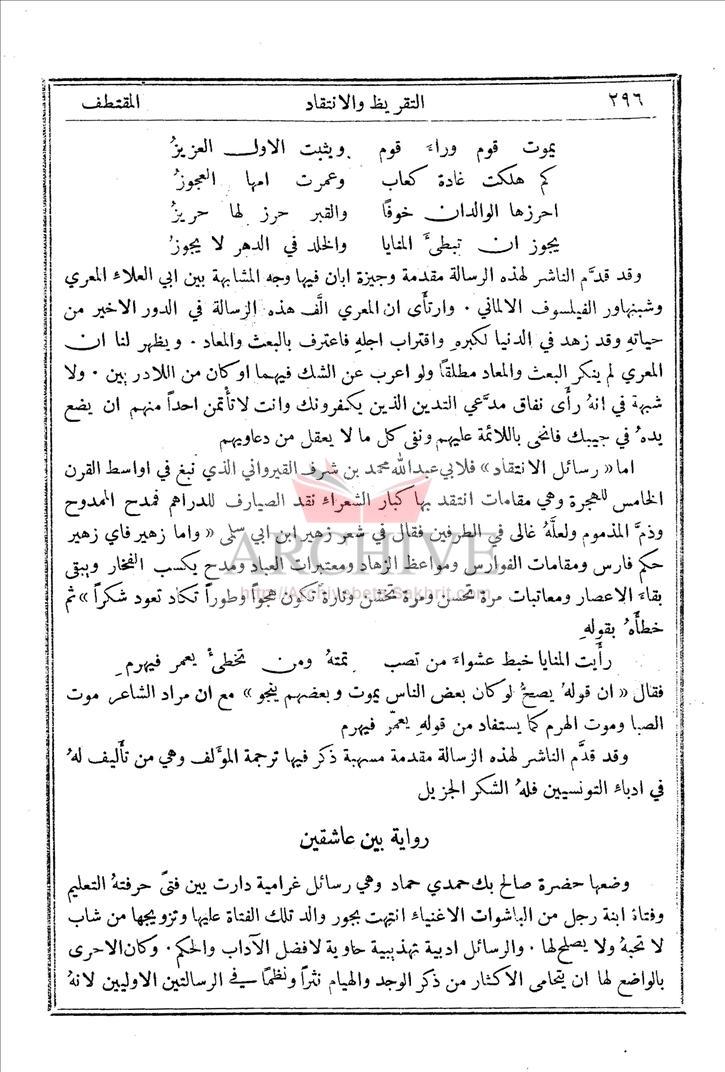 ٢٩٦ التقريظ والانتقاد المقتطف
يموت قوم وراءَ قوم ويثبت الاول العزيزُ
كم هلكت غادة كعاب وعمرت امها العجوزُ
احرزها الوالدان خوفًا والقبر حرز لها حريزُ
يجوز ان تبطئَ المنايا والخلد في الدهر لا يجوزُ
وقد قدَّم الناشر لهذه الرسالة مقدمة وجيزة ابان فيها وجه المشابهة بين ابي العلاء المعري
وشبنهاور الفيلسوف الالماني . وارتأى ان المعري الَّف هذه الرسالة في الدور الاخير من
حياتهِ وقد زهد في الدنيا لكبرهِ واقتراب اجلهِ فاعترف بالبعث والمعاد . ويظهر لنا ان
المعري لم ينكر البعث والمعاد مطلقًا ولو اعرب عن الشك فيهما او كان من اللادربين . ولا
شبهة في انهُ رأى نفاق مدَّعي التدين الذين يكفرونك وانت لا تأتمن احداً منهم ان يضع
يدهُ في جيبك فانحى باللائمة عليهم ونفى كل ما لا يعقل من دعاويهم
اما «رسائل الانتقاد» فلابي عبدالله محمد بن شرف القيرواني الذي نبغ في اواسط القرن
الخامس للهجرة وهي مقامات انتقد بها كبار الشعراء نقد الصيارف للدراهم فمدح الممدوح
وذمَّ المذموم ولعلَّهُ غالى في الطرفين فقال في شعر زهير ابن ابي سلمى « واما زهير فاي زهير
حكم فارس ومقامات الفوارس ومواعظ الزهاد ومعتبرات العباد ومدح يكسب الفخار ويبقى
بقاء الاعصار ومعاتبات مرة تحسن ومرة تخشن وتارة تكون هجواً وطوراً تكاد تعود شكراً » ثم
خطأهُ بقولهِ
رأيت المنايا خبط عشواءَ من تصب تمتهُ ومن تخطئْ يعمر فيهرم
فقال « ان قولهُ يصحُّ لو كان بعض الناس يموت وبعضهم ينجو » مع ان مراد الشاعر موت
الصبا وموت الهرم كما يستفاد من قولهِ يعمَّر فيهرم
وقد قدَّم الناشر لهذه الرسالة مقدمة مسهبة ذكر فيها ترجمة المؤلف وهي من تأليف لهُ
في ادباء التونسيين فلهُ الشكر الجزيل
رواية بين عاشقين
وضعها حضرة صالح بك حمدي حماد وهي رسائل غرامية دارت بين فتىً حرفتهُ التعليم
وفتاة ابنة رجل من الباشوات الاغنياء انتهت بجور والد تلك الفتاة عليها وتزويجها من شاب
لا تحبهُ ولا يصلح لها . والرسائل ادبية تهذيبية حاوية لافضل الآداب والحكم . وكان الاحرى
بالواضع لها ان يتحامى الاكثار من ذكر الوجد والهيام نثراً ونظمًا في الرسالتين الاوليين لانهُ
ARCHIVE
http://Archivebeta.Sakhrit.com